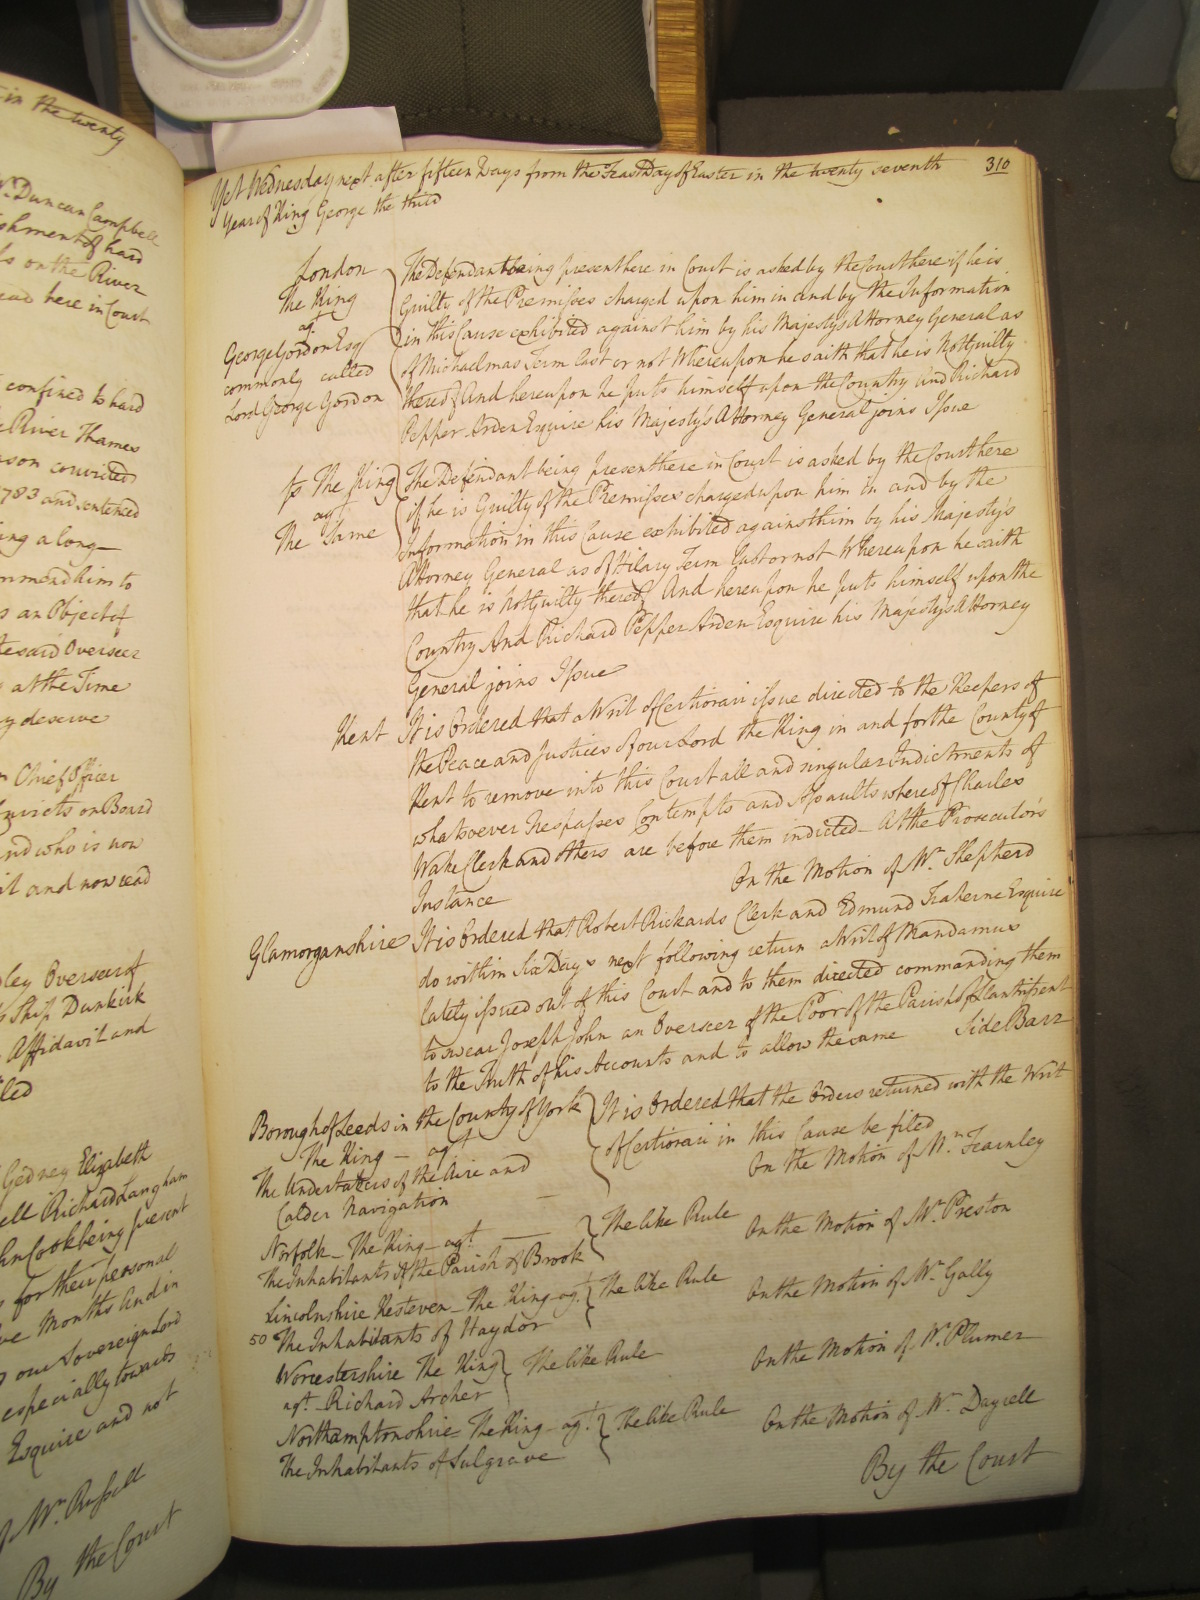 in the twenty
Mr. Duncan Campbell
ishment of hard
ls on the River
ead here in Court
confined to hard
e River Thames
ason convicted
1783 and sentenced
ing a long
mmend him to
s an Object of
the said Overseer
at the Time
ly deserve
Chief Officer
Convicts on Board
and who is now
it and now read
ley Overseer of
Ship Dunkirk
Affidavit and
led
Gedney Elizabeth
ell Richard Langham
hn Cook being present
for their personal
ve Months and in
our Sovereign Lord
especially towards
Esquire and not
of Mr. Russell
By the Court
310
Yet Wednesday next after fifteen Days from the Feast Day of Easter in the twenty seventh
Year of King George the third
London
The King
agt
George Gordon Esqr
commonly called
Lord George Gordon
The Defendant being present here in Court is asked by the Court here if he is
Guilty of the Premisses charged upon him in and by the Information
in this Cause exhibited against him by his Majestys Attorney General as
of Michaelmas Term last or not Whereupon he saith that he is Not Guilty
thereof And hereupon he puts himself upon the Country And Richard
Pepper Arden Esquire his Majesty's Attorney General joins Issue
fs The King
agt
The Same
The Defendant being present here in Court is asked by the Court here
if he is Guilty of the Premisses charged upon him in and by the
Information in this Cause exhibited against him by his Majesty's
Attorney General as of Hilary Term last or not Whereupon he saith
that he is Not Guilty thereof And hereupon he puts himself upon the
Country And Richard Pepper Arden Esquire his Majestys Attorney
General joins Issue
Kent It is Ordered that a Writ of Certiorari issue directed to the Keepers of
the Peace and Justices of our Lord the King in and for the County of
Kent to remove into this Court all and singular Indictments of
whatsoever Trespasses Contempts and Assaults whereof Charles
Wake Clerk and others are before them indicted - At the Prosecutor's
Instance On the Motion of Mr. Shepherd
Glamorganshire It is Ordered that Robert Rickards Clerk and Edmund Traherne Esquire
do within Six Days next following return a Writ of Mandamus
lately issued out of this Court and to them directed commanding them
to swear Joseph John an Overseer of the Poor of the Parish of Llantrisent
to the Truth of his Accounts and to allow the same Side Barr
Borough of Leeds in the County of York
The King - agt
The Undertakers of the Aire and
Calder Navigation
It is Ordered that the Orders returned with the Writ
of Certiorari in this Cause be filed
On the Motion of Mr. Fearnley
Norfolk - The King - agt.
The Inhabitants of the Parish of Brook
The like Rule On the Motion of Mr. Preston
Lincolnshire Kesteven - The King - agt.
50 The Inhabitants of Haydor
The like Rule On the Motion of Mr. Gally
Worcestershire The King
agt. Richard Archer
The like Rule On the Motion of Mr. Plumer
Northamptonshire - The King - agt.
The Inhabitants of Sulgrave
The like Rule On the Motion of Mr. Dayrell
By the Court